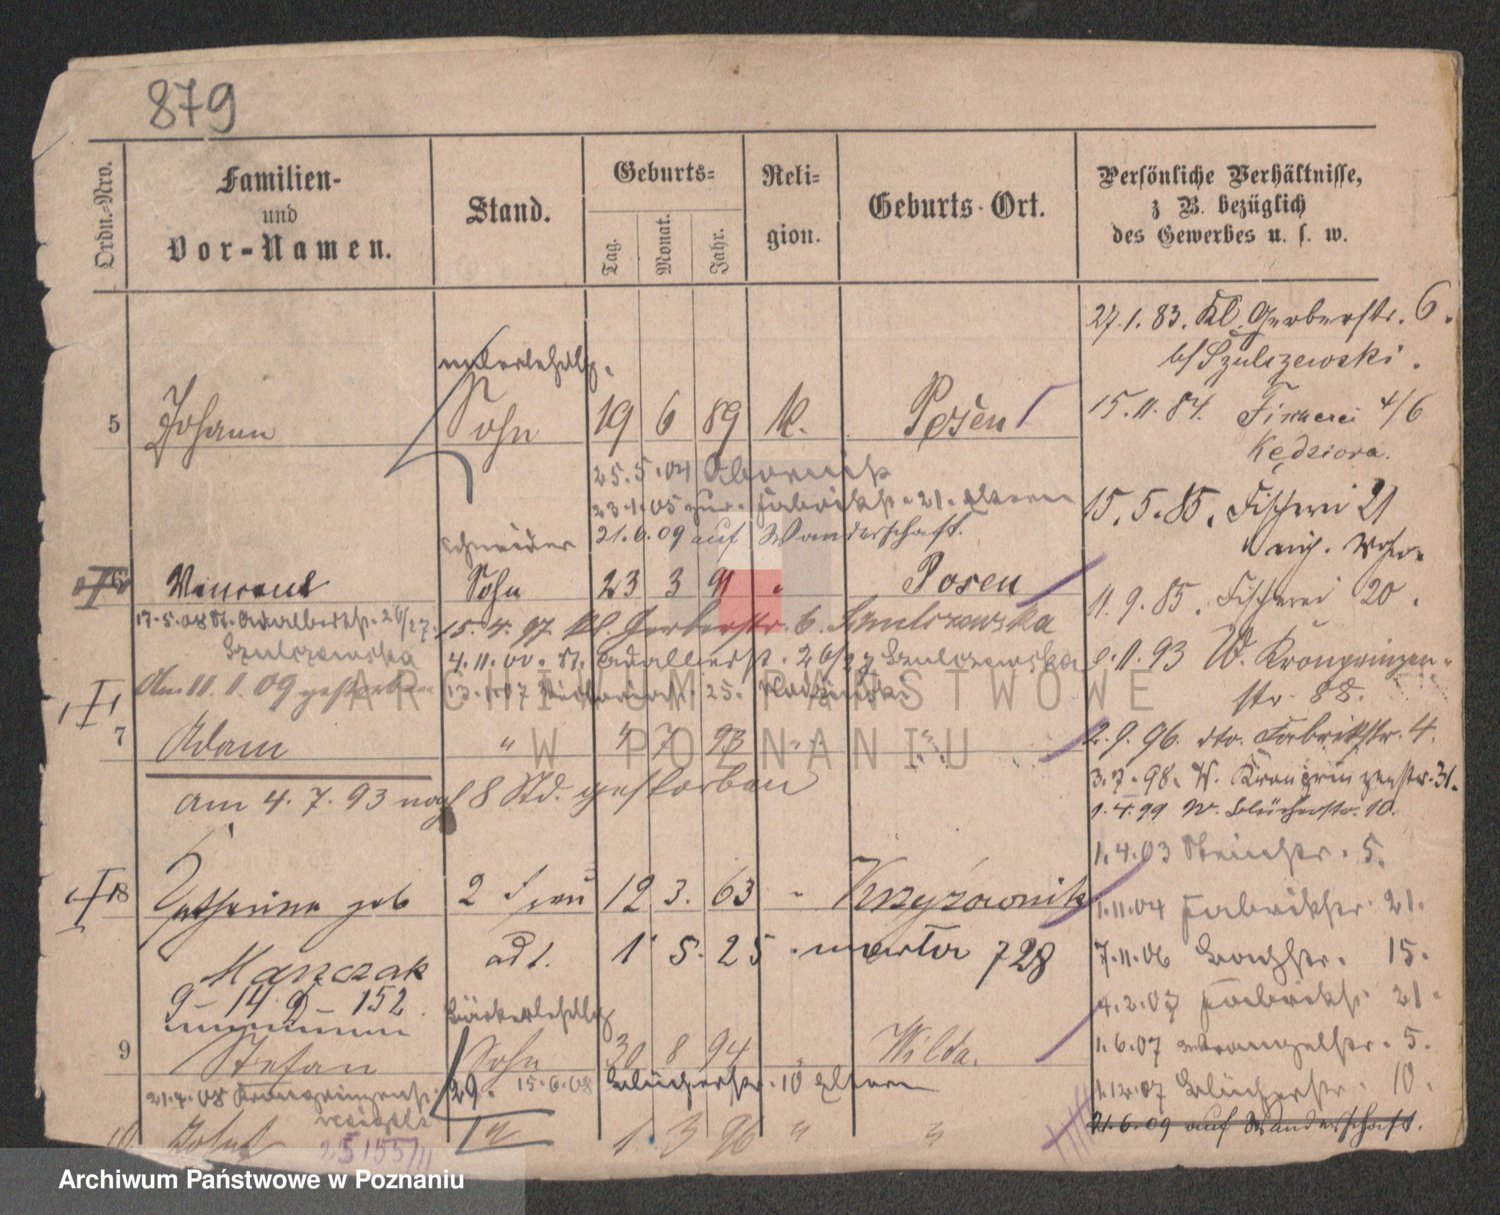 879
Ordn.-Nro.
Familien-
und
Vor-Namen.
Stand.
Geburts-
Tag.
Monat.
Jahr.
Reli-
gion.
Geburts-Ort.
Persönliche Verhältnisse,
z B. bezüglich
des Gewerbes u. s. w.
27.1.83. Kl. Gerberstr. 6.
b/ Szulczewski.
5 Johann Sohn 19 6 89 k. Posen
15.11.84. 4/6
Kędziora.
25.5.04
23.1.05 zur. Fabrikstr. 21. Eltern
21.6.09 auf Wanderschaft.
15.5.85. Fischerei 21
Schneider
6 Vincent Sohn 23 3 91 " Posen
11.9.85. Fischerei 20.
17.5.08 St. Adalbertstr. 26/27.
Szulczewska
15.4.97. Kl. Gerberstr. 6. Szulczewska
4.11.00. St. Adalbertst. 26/27 Szulczewska
Am 11.1.09 gestorben
13.1.07 25.
11.93 W. Kronprinzen-
str. 88.
7 Adam " 4 7 93 " "
2.9.96. dto. Fabrikstr. 4.
am 4.7.93 nach 8 Std. gestorben
3.7.98. W. Kronprinzenstr. 31.
1.4.99 W. Blücherstr. 10.
1.4.03 5.
8 Catharina geb 2 Frau 12 3. 63 " Krzyżownik
1.11.04 Fabrikstr. 21.
Maszczak adt. 1 5. 25. 728
7.11.06 15.
9 – 14 D – 152.
4.2.07 Fabrikst. 21.
Bäckerlehrlg
9 Stefan Sohn 30 8 94 " Wilda.
1.6.07 Wrangelstr. 5.
21.4.08 Kronprinzenst. 29. 15.6.08 Blücherstr. 10 Eltern
1.12.07 Blücherstr. 10.
21.6.09 auf Wanderschaft.
10 " 1 3 96 " "
25155
ARCHIWUM PAŃSTWOWE
W POZNANIU
Archiwum Państwowe w Poznaniu